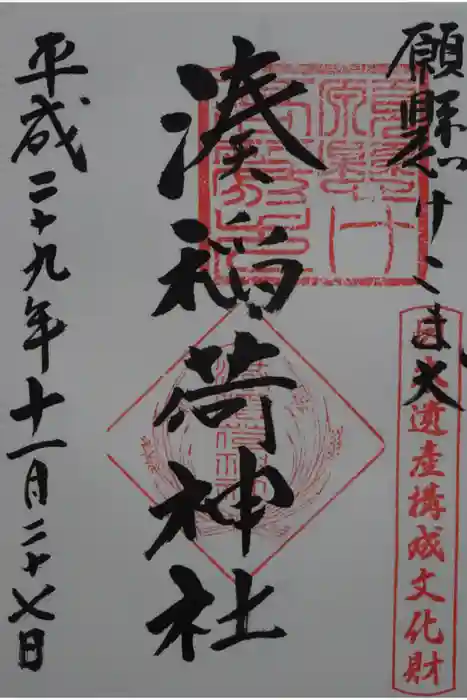 願懸けこま犬
日本遺産構成文化財
湊稲荷神社
平成二十九年十一月二十七日